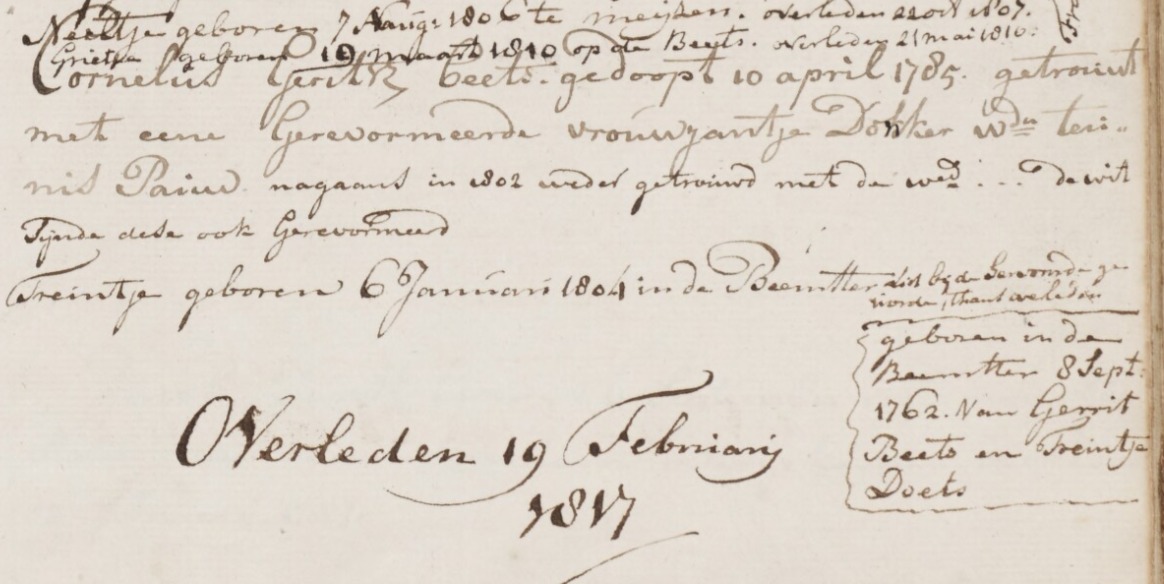 Neeltje geboren 7 Aaug: 1806 te meijzen. overleden 22 oct 1807.
Grietje geboren 19 maart 1810 op de Beets. overleden 21 mai 1810.
Cornelius Gerritsz beets. gedoopt 10 april 1785. getrouwt
met eene Gerevormeerde vrouw jantje Dokker wdu teu-
nis Pauw. nagaans in 1802 weder getrouwd met de wed. ... de wit
zijnde dese ook Gerevormeerd
Treintje geboren 6 Januari 1804 in de Beemster Lid bij de Gerevormde ge
worde, thans overleden
geboren in de
Beemster 8 Sept:
1762. Van Gerrit
Beets en Treintje
Doets
Overleden 19 Februarij
1817